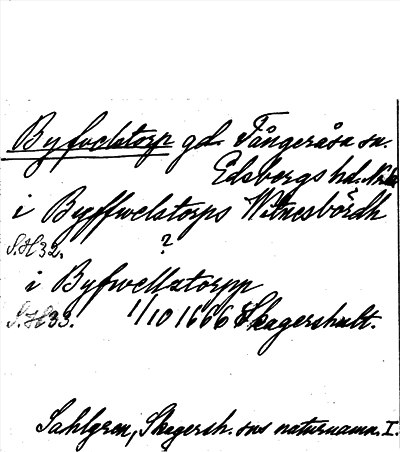 Byfvelstorp gd. Tångeråsa sn.
Edsbergs hd.
i Byffwelstorps Witnesbördh
S.H 32. ?
i Byfwellstorpp
S.H 33. 1/10 1666 Skagershult.
Sahlgren, Skagersh. sns naturnamn. I.